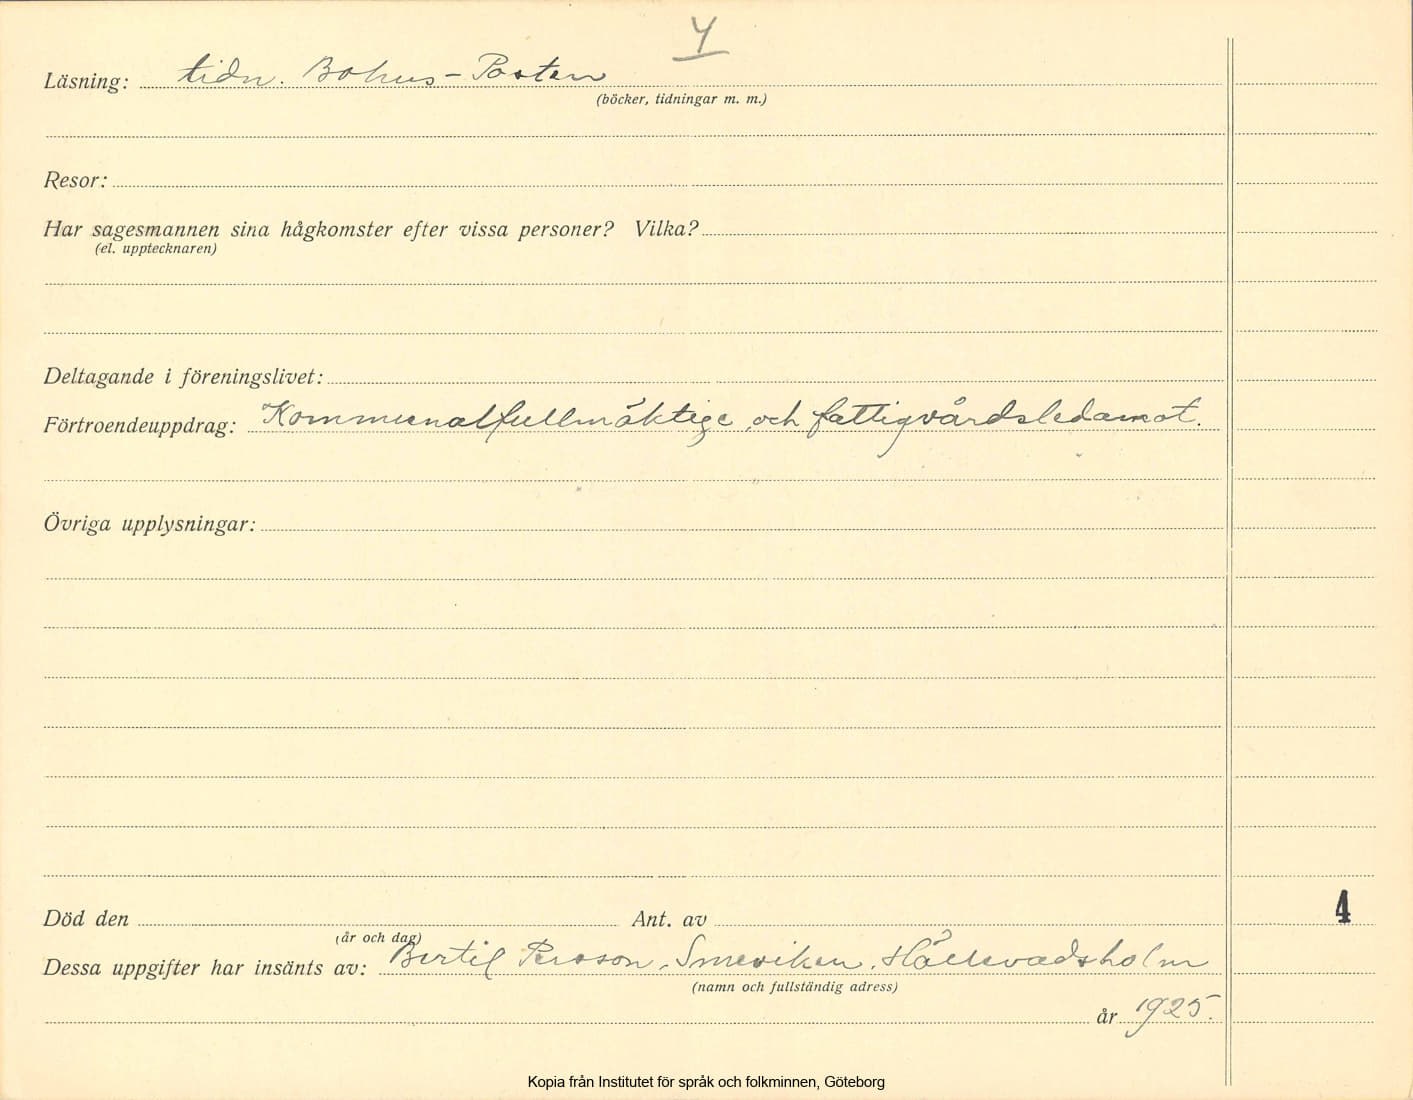 4
Läsning: tidn. Bohus-Posten
(böcker, tidningar m. m.)
Resor:
Har sagesmannen sina hågkomster efter vissa personer? Vilka?
(el. upptecknaren)
Deltagande i föreningslivet:
Förtroendeuppdrag: Kommunalfullmäktige och fattigvårdsledamot.
Övriga upplysningar:
4
Död den Ant. av
(år och dag)
Dessa uppgifter har insänts av: Bertil Persson, Smeviken, Hällevadsholm
(namn och fullständig adress)
år 1925.
Kopia från Institutet för språk och folkminnen, Göteborg